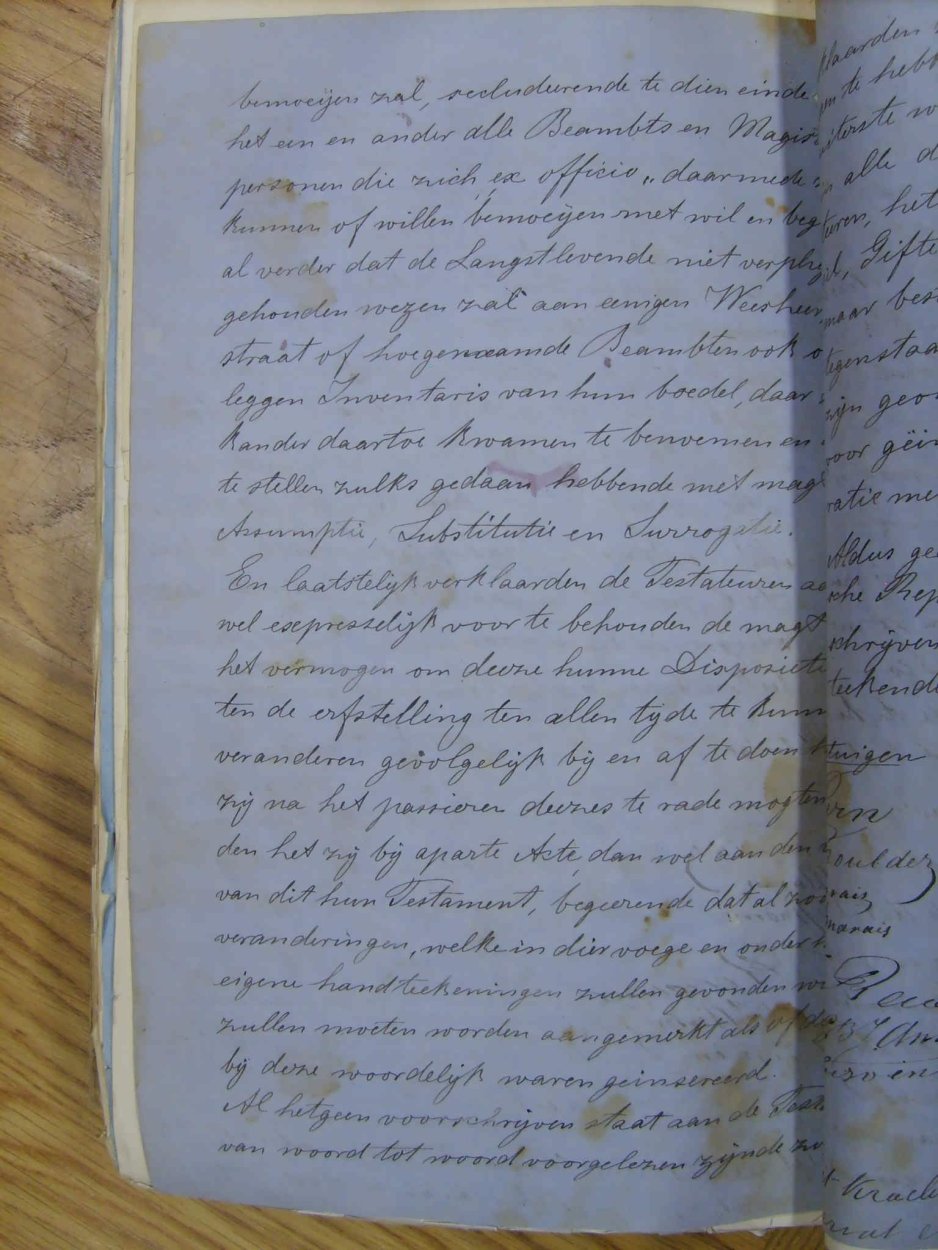 bemoeijen zal, secludeerende te dien einde
het een en ander alle Beambts en Magis
personen die zich ex officio „ daarmede
kunnen of willen bemoeijen met wil en beg
al verder dat de Langstlevende niet verpli
gehouden wezen zal aan eenigen Weesheer
straat of hoegenaamde Beambten ook o
leggen Inventaris van hun boedel, daar
kander daartoe kwamen te benoemen en
te stellen zulks gedaan hebbende met mag
Assumptie, Substitutie en Surrogatie.
En laatstelijk verklaarden de Testateuren aa
wel expresselijk voor te behouden de magt
het vermogen om deeze hunne Dispositie
ten de erfstelling ten allen tijde te kunn
veranderen gevolgelijk bij en af te doen
zij na het passeren deezes te rade mogten
den het zij bij aparte Acte, dan wel aan den
van dit hun Testament, begeerende dat al zo
veranderingen, welke in diervoege en onder
eigene handteekeningen zullen gevonden wo
zullen moeten worden aangemerkt als of de
bij deze woordelijk waren geinsereerd.
Al hetgeen voorschrijven staat aan de Test
van woord tot woord voorgelezen zijnde zo
laarden
te hebb
iterste w
alle d
het
Gifte
maar best
tegenstaa
zijn geo
voor gëin
ratie me
Aldus ge
sche Rep
schrijven
teekend
tuigen
oulder
rais
marais
krach